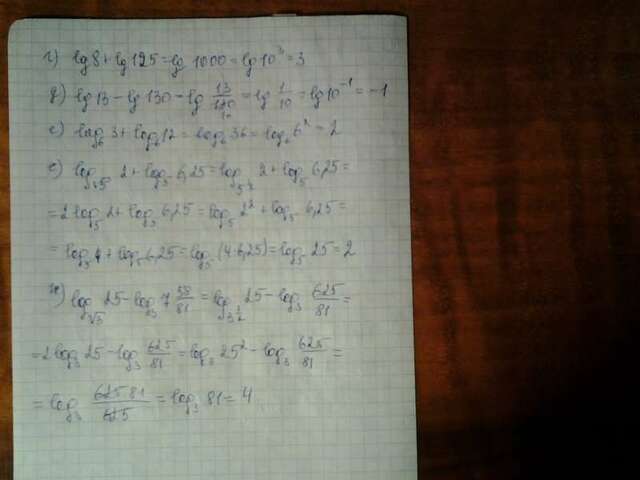 г) lg 8 + lg 125 = lg 1000 = lg 10³ = 3
д) lg 13 − lg 130 = lg 13/130 = lg 1/10 = lg 10⁻¹ = −1
е) log₆ 3 + log₆ 12 = log₆ 36 = log₆ 6² = 2
ё) log_√5 2 + log₅ 6,25 = log_5^½ 2 + log₅ 6,25 =
= 2 log₅ 2 + log₅ 6,25 = log₅ 2² + log₅ 6,25 =
= log₅ 4 + log₅ 6,25 = log₅ (4·6,25) = log₅ 25 = 2
ж) log_√3 25 − log₃ 7 58/81 = log_3^½ 25 − log₃ 625/81 =
= 2 log₃ 25 − log₃ 625/81 = log₃ 25² − log₃ 625/81 =
= log₃ 625·81/625 = log₃ 81 = 4